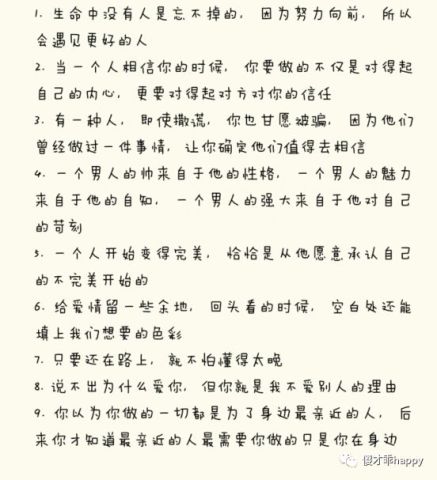 1. 生命中没有人是忘不掉的， 因为努力向前， 所以
会遇见更好的人
2. 当一个人相信你的时候， 你要做的不仅是对得起
自己的内心， 更要对得起对方对你的信任
3. 有一种人， 即使撒谎， 你也甘愿被骗， 因为他们
曾经做过一件事情， 让你确定他们值得去相信
4. 一个男人的帅来自于他的性格， 一个男人的魅力
来自于他的自知， 一个男人的强大来自于他对自己
的苛刻
5. 一个人开始变得完美， 恰恰是从他愿意承认自己
的不完美开始的
6. 给爱情留一些余地， 回头看的时候， 空白处还能
填上我们想要的色彩
7. 只要还在路上， 就不怕懂得太晚
8. 说不出为什么爱你， 但你就是我不爱别人的理由
9. 你以为你做的一切都是为了身边最亲近的人， 后
来你才知道最亲近的人最需要你做的只是你在身边
傻才乖happy